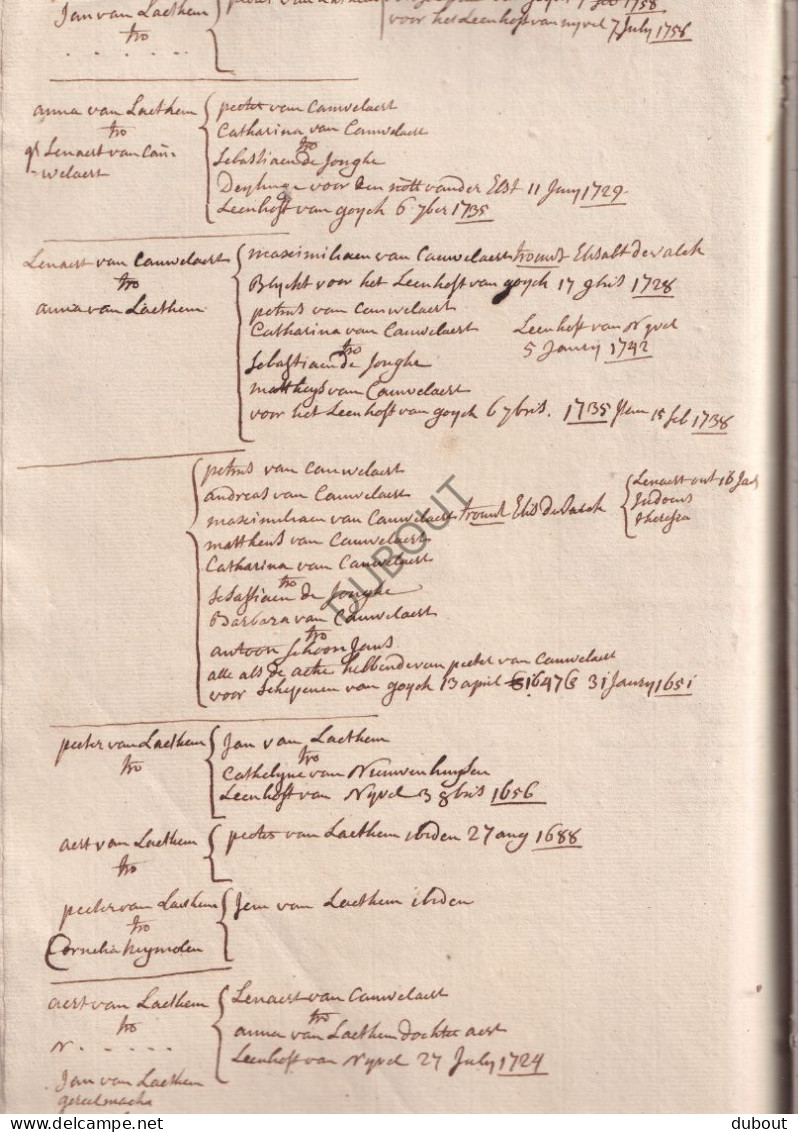 Jan van Laethem
tro
voor het Leenhoff van nyvel 7 July 1758
anna van Laethem
tro
Lenaert van Cau-
-welaert
peeter van Cauwelaert
Catharina van Cauwelaert
tro
Sebastiaen de Jonghe
Deylinge voor den nott vander Elst 11 Jany 1729
Leenhoff van goyck 6 7ber 1735
Lenaert van Cauwelaert
tro
anna van Laethem
maximiliaen van Cauwelaert trouwt Elisabt de valck
Blyckt voor het Leenhoff van goyck 17 9bris 1728
petrus van Cauwelaert
Catharina van Cauwelaert
tro
Sebastiaen de Jonghe
mattheys van Cauwelaert
voor het Leenhoff van goyck 6 7bris. 1735 Item 15 feb 1738
Leenhoff van Nyvel
5 Janry 1742
petrus van Cauwelaert
andreas van Cauwelaert
maximiliaen van Cauwelaert trouwt Elis de Valck
mattheus van Cauwelaert
Catharina van Cauwelaert
tro
Sebastiaen de Jonghe
Barbara van Cauwelaert
tro
antoon Schoon Jans
alle als de actie hebbende van peeter van Cauwelaert
voor Schepenen van goyck 13 april 1647 31 Janry 1651
Lenaert out 16 Jae
Judocus
theresia
peeter van Laethem
tro
Jan van Laethem
tro
Cathelyne van Nieuwenhuysen
Leenhoff van Nyvel 3 8bris 1656
aert van Laethem
tro
peeter van Laethem ibiden 27 aug 1688
peeter van Laethem
tro
Cornelia heymolen
Jan van Laethem ibiden
aert van Laethem
tro
N. . . . . .
Lenaert van Cauwelaert
tro
anna van Laethem dochter aert
Leenhoff van Nyvel 27 July 1724
Jan van Laethem
DUBOUT
delcampe.net
dubout